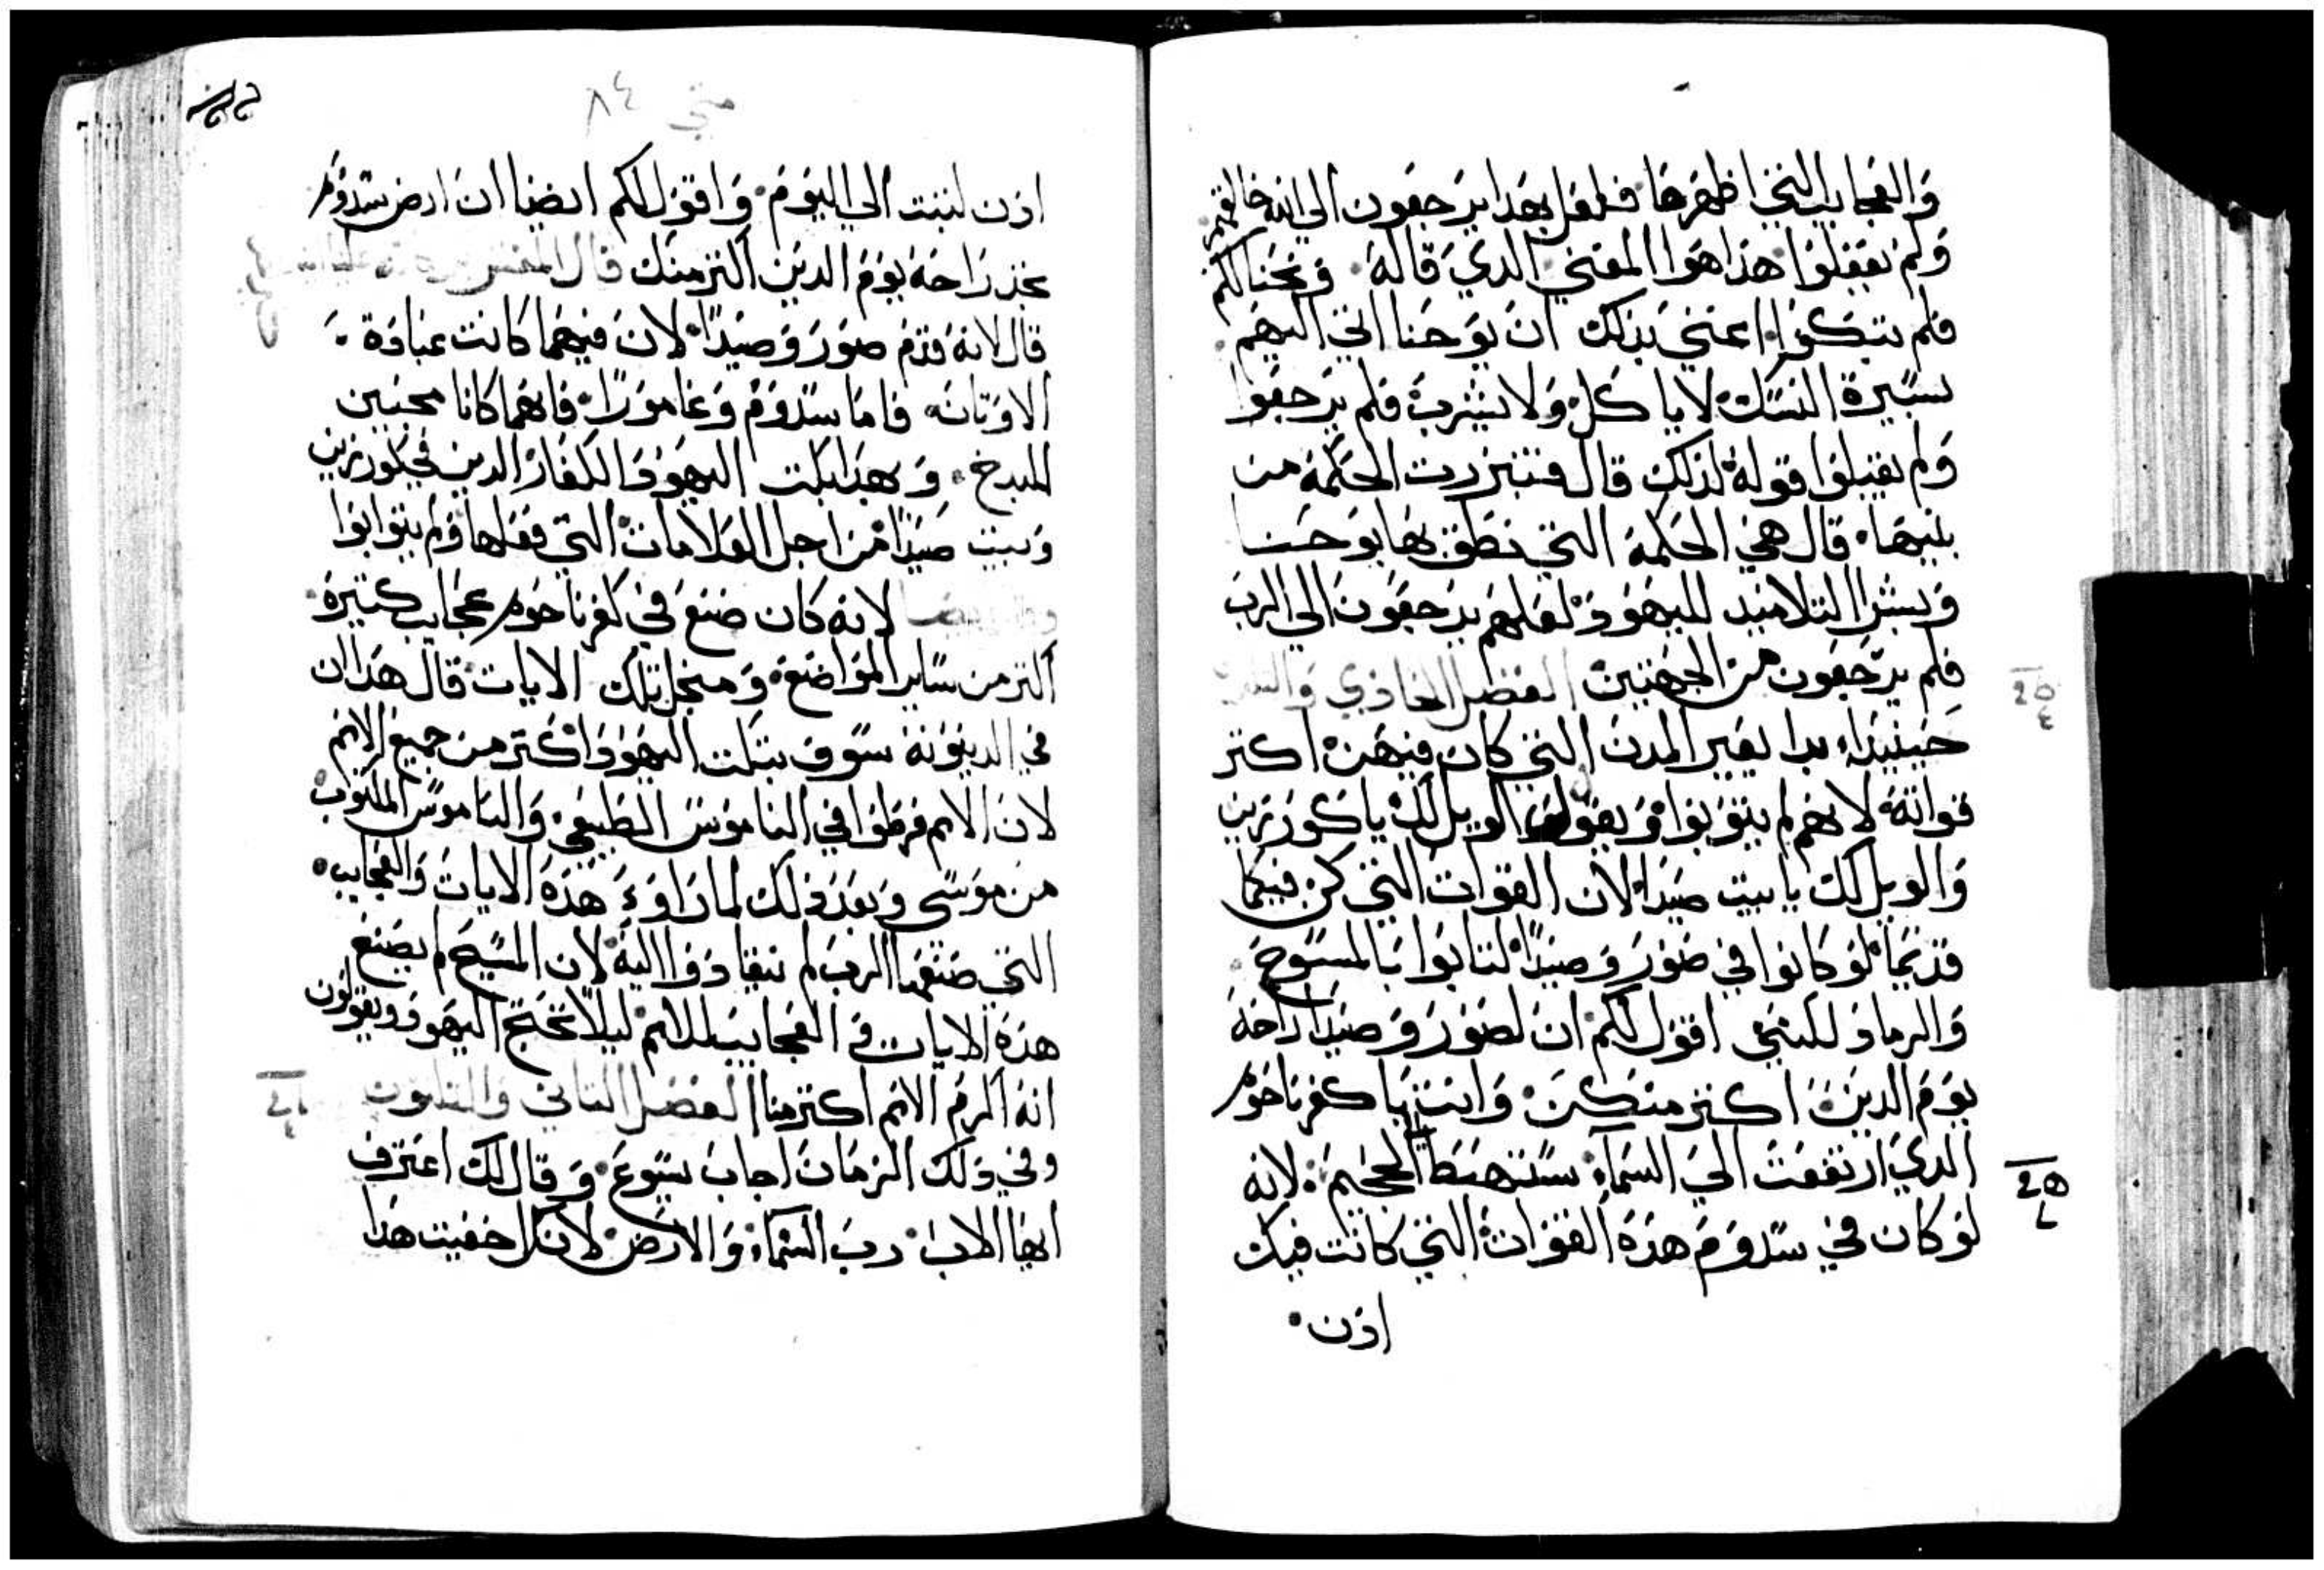 والعجايب التي اظهرها فلعل بهدا يرجعون الي الله خالقهم
ولم يفعلوا هذا هوا المعني الدي قاله ونحنا لكم
فلم تبكوا اعني بذلك ان يوحنا اتي اليهم
بسيرة النسك لا ياكل ولا يشرب فلم يرجعوا
ولم يقبلوا قوله لذلك قال فتبررت الحكمة من
بنيها قال هي الحكمة التي نطق بها يوحنا
وبشر التلاميد لليهود لعلهم يرجعون الي الرب
فلم يرجعون من الجهتين الفصل الحادي و
حينيداء بدا يعير المدن التي كان فيهن اكتر
قواته لانهم لم يتوبوا ويقول الويل لك يا كورزين
والويل لك يا بيت صيدا لان القوات التي كن فيكما
قديما لو كانوا في صور وصيدا لتابوا بالمسوح
والرماد لكنني اقول لكم ان لصور وصيدا راحة
يوم الدين اكتر منكن وانت يا كفرناحوم
الدي ارتفعت الي السماء ستهبط الجحيم لانه
لو كان في سدوم هذه القوات التي كانت فيك
اذن
متي ٨٤
اذن لتبتت الي اليوم واقول لكم ايضا ان ارض سدوم
تجد راحة يوم الدين اكتر منك قال المفسر
قال لانه قدم صور وصيدا لان فيهما كانت عبادة
الاوتان فاما سدوم وغامورا فانهما كانا محبين
للبدخ وبهدا بكت اليهود الكفار الدين في كورزين
وبيت صيدا من اجل العلامات التي فعلها ولم يتوابوا
لانه كان صنع في كفرناحوم عجايب كتيرة
اكتر من ساير المواضع ومنجل تلك الايات قال هدا ان
في الدينونة سوف تبكت اليهود اكتر من جميع الامم
لان الامم فرطوا في الناموس الطبيعي والناموس المكتوب
من موسي وبعد ذلك لما راوء هذه الايات والعجايب
التي صنعها الرب لم ينقادوا اليه لان المسيح لم يصنع
هذه الايات و العجايب للامم ليلا تحتج اليهود ويقولون
انه اكرم الامم اكتر منا الفصل التاني والتلتون
وفي دلك الزمان اجاب يسوع وقال لك اعترف
ايها الاب رب السماء والارض لانك اخفيت هدا